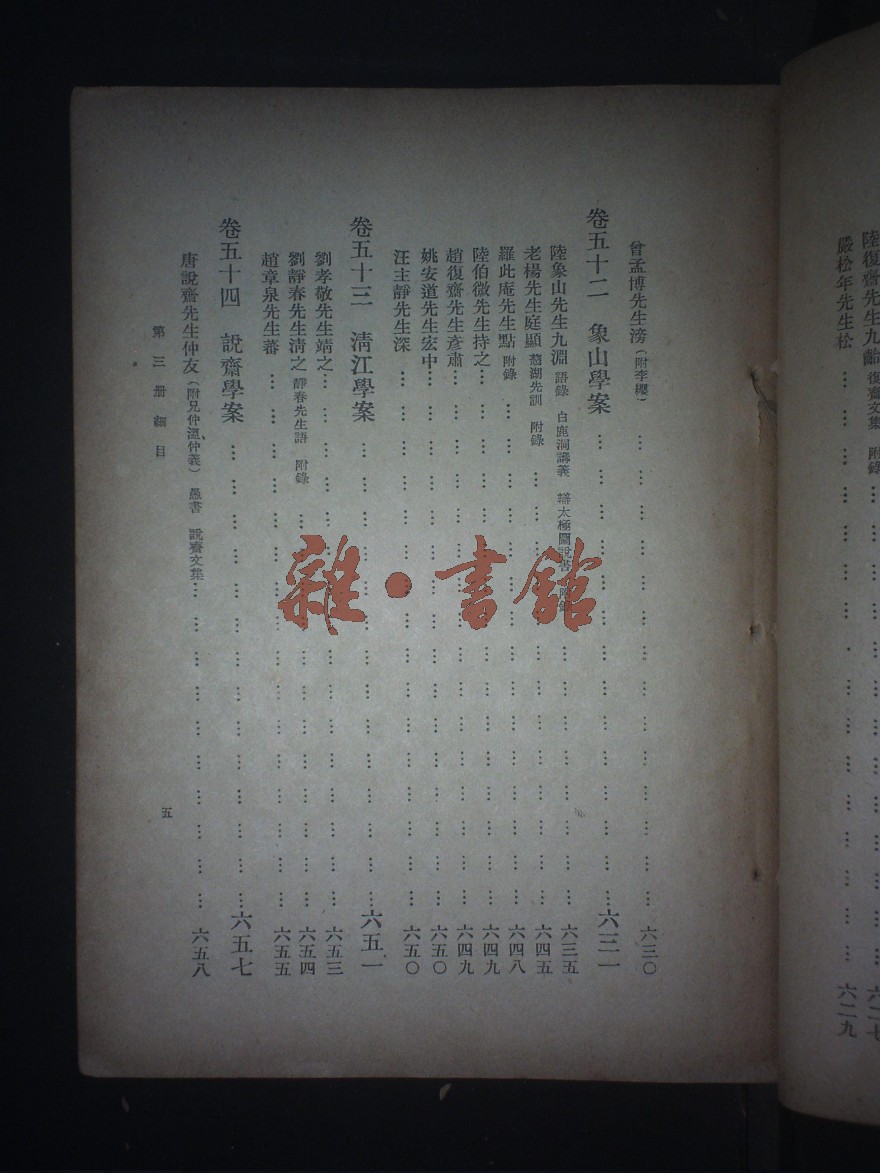 陸復齋先生九齡 復齋文集 附錄 … … … … 六二七
嚴松年先生松 … … … … 六二九
曾孟博先生滂（附李纓） … … … … 六三〇
卷五十二 象山學案 … … … … 六三一
陸象山先生九淵 語錄 白鹿洞講義 辯太極圖說書 附錄 … … … … 六三五
老楊先生庭顯 慈湖先訓 附錄 … … … … 六四五
羅此庵先生點 附錄 … … … … 六四八
陸伯微先生持之 … … … … 六四九
趙復齋先生彥肅 … … … … 六四九
姚安道先生宏中 … … … … 六五〇
汪主靜先生深 … … … … 六五〇
卷五十三 清江學案 … … … … 六五一
劉孝敬先生靖之 … … … … 六五三
劉靜春先生清之 靜春先生語 附錄 … … … … 六五四
趙章泉先生蕃 … … … … 六五五
卷五十四 說齋學案 … … … … 六五七
唐說齋先生仲友（附兄仲溫、仲義） 愚書 說齋文集 … … … … 六五八
第三册細目
五
雜·書館